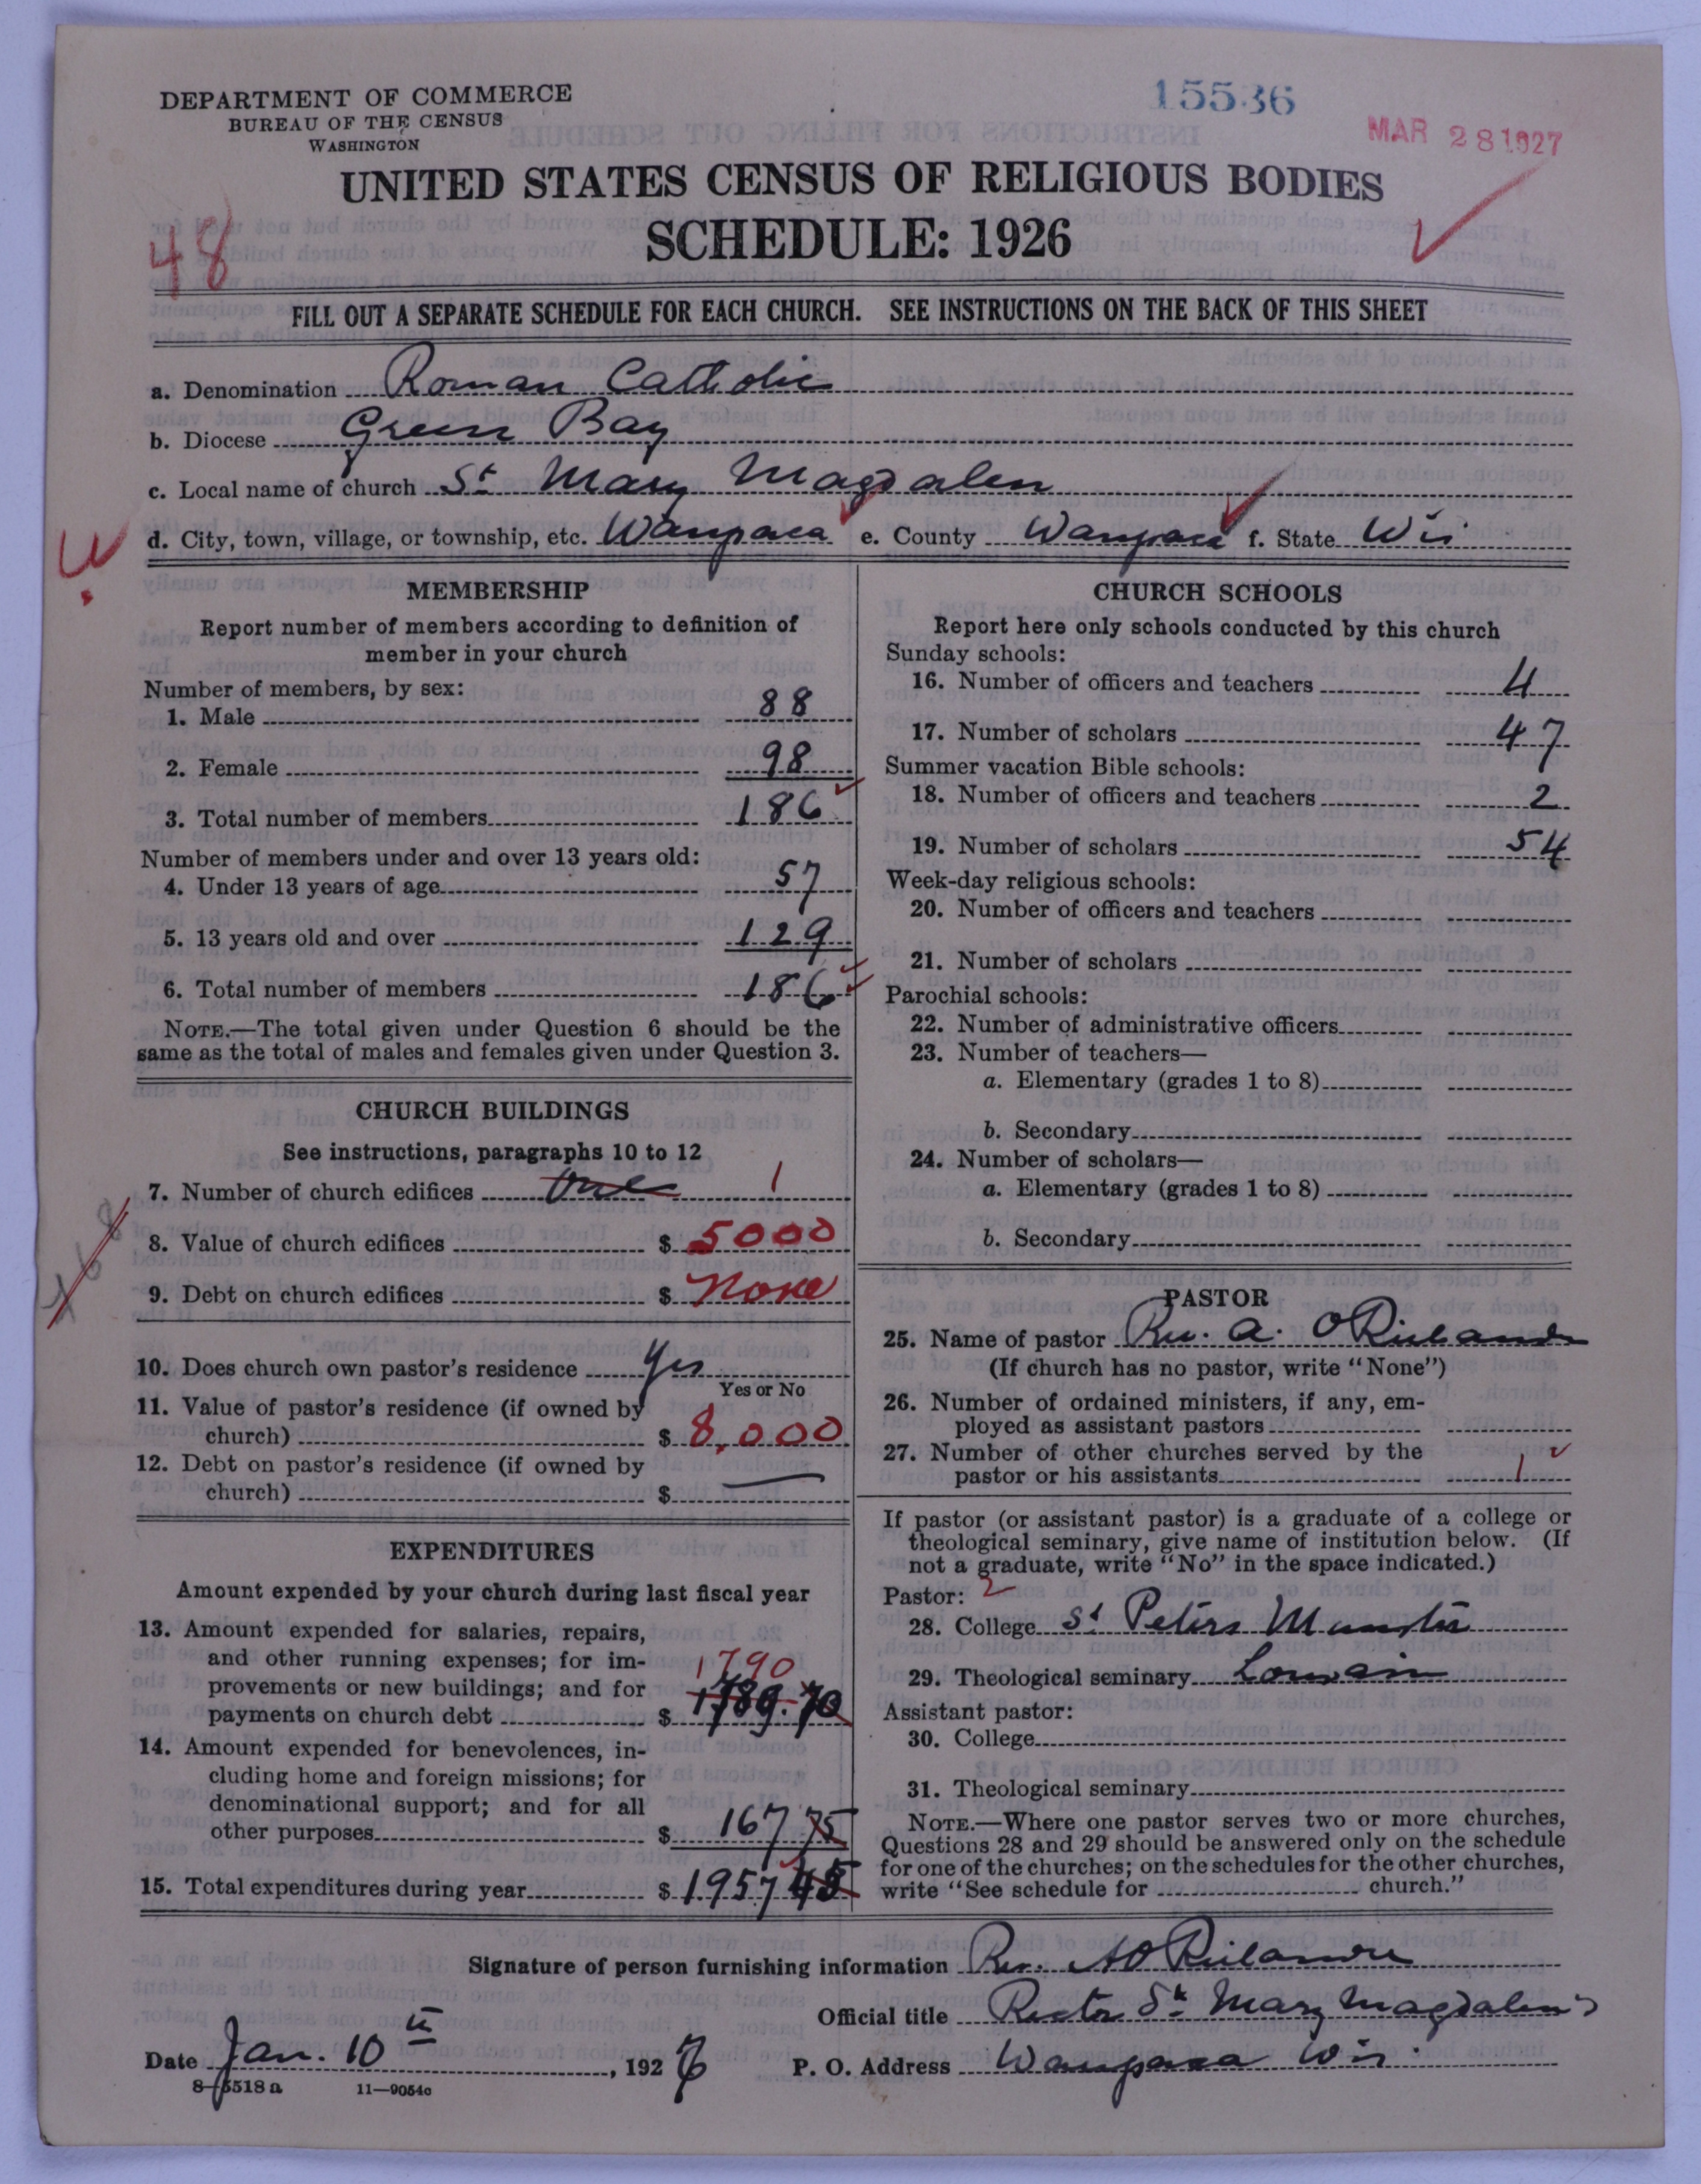 DEPARTMENT OF COMMERCE
BUREAU OF THE CENSUS
WASHINGTON
15536
MAR 28 1927
UNITED STATES CENSUS OF RELIGIOUS BODIES
SCHEDULE: 1926
48
FILL OUT A SEPARATE SCHEDULE FOR EACH CHURCH. SEE INSTRUCTIONS ON THE BACK OF THIS SHEET
a. Denomination Roman Catholic
b. Diocese Green Bay
c. Local name of church St Mary Magdalen
d. City, town, village, or township, etc. Waupaca e. County Waupaca f. State Wis
MEMBERSHIP
Report number of members according to definition of
member in your church
Number of members, by sex:
1. Male 88
2. Female 98
3. Total number of members 186
Number of members under and over 13 years old:
4. Under 13 years of age 57
5. 13 years old and over 129
6. Total number of members 186
NOTE.—The total given under Question 6 should be the
same as the total of males and females given under Question 3.
CHURCH BUILDINGS
See instructions, paragraphs 10 to 12
7. Number of church edifices One 1
8. Value of church edifices $ 5000
9. Debt on church edifices $ None
10. Does church own pastor's residence Yes
Yes or No
11. Value of pastor's residence (if owned by
church) $ 8,000
12. Debt on pastor's residence (if owned by
church) $ —
EXPENDITURES
Amount expended by your church during last fiscal year
13. Amount expended for salaries, repairs,
and other running expenses; for im-
1790
provements or new buildings; and for
payments on church debt $ 1789.70
14. Amount expended for benevolences, in-
cluding home and foreign missions; for
denominational support; and for all
other purposes $ 167 75
15. Total expenditures during year $ 1957 45
CHURCH SCHOOLS
Report here only schools conducted by this church
Sunday schools:
16. Number of officers and teachers 4
17. Number of scholars 47
Summer vacation Bible schools:
18. Number of officers and teachers 2
19. Number of scholars 54
Week-day religious schools:
20. Number of officers and teachers
21. Number of scholars
Parochial schools:
22. Number of administrative officers
23. Number of teachers—
a. Elementary (grades 1 to 8)
b. Secondary
24. Number of scholars—
a. Elementary (grades 1 to 8)
b. Secondary
PASTOR
25. Name of pastor Rev. A.
(If church has no pastor, write "None")
26. Number of ordained ministers, if any, em-
ployed as assistant pastors
27. Number of other churches served by the
pastor or his assistants 1
If pastor (or assistant pastor) is a graduate of a college or
theological seminary, give name of institution below. (If
not a graduate, write "No" in the space indicated.)
Pastor: 2
28. College St Peters Munster
29. Theological seminary Louvain
Assistant pastor:
30. College
31. Theological seminary
NOTE.—Where one pastor serves two or more churches,
Questions 28 and 29 should be answered only on the schedule
for one of the churches; on the schedules for the other churches,
write "See schedule for church."
Signature of person furnishing information Rev.
Official title Rector St Mary Magdalen's
Date Jan. 10th, 1926 P. O. Address Waupaca Wis.
8—5518 a 11—9054c